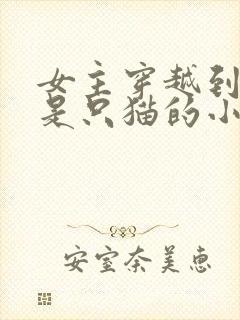 女主穿越到
是只猫的小
安室奈美惠